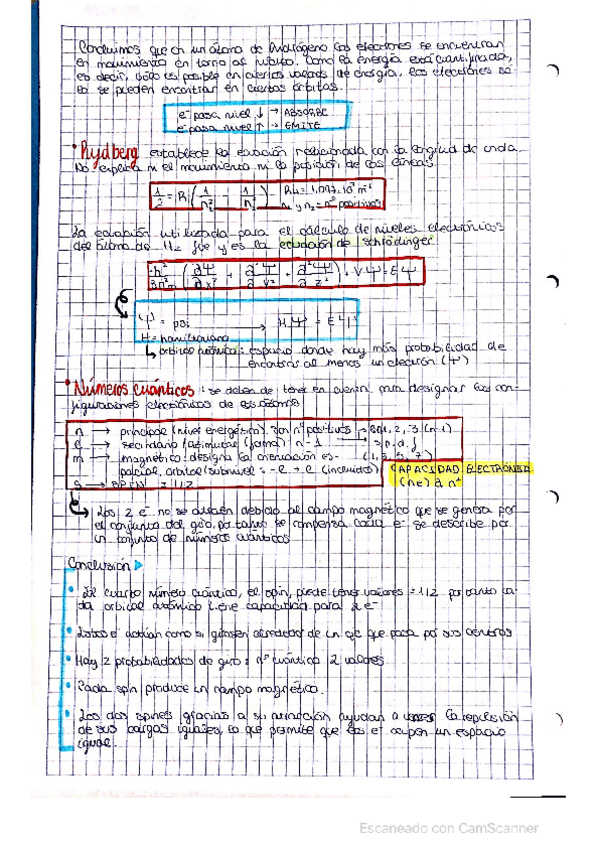 Concluimos que en un átomo de hidrógeno los electrones se encuentran
en movimiento en torno al núcleo. Como la energía está cuantizada,
es decir, sólo es posible en ciertos valores de energía, los electrones só-
lo se pueden encontrar en ciertas órbitas.
e⁻ pasa nivel ↓ → ABSORBE
e⁻ pasa nivel ↑ → EMITE
• Rydberg establece la ecuación relacionada con la longitud de onda.
No explica ni el movimiento ni la posición de las líneas.
n₁ y n₂ = nº positivos
La ecuación utilizada para el cálculo de niveles electrónicos
del átomo de H₂ fue y es la ecuación de Schrödinger
Ψ = psi → HΨ = EΨ
H = hamiltoniano
↳ orbital atómico: espacio donde hay más probabilidad de
encontrar al menos un electrón (Ψ)
• Números cuánticos: se deben de tener en cuenta para designar las con-
figuraciones electrónicas de los átomos
n → principal (nivel energético). Son nº positivos
secundario / azimutal (forma) n-1 → s, p, d, f
m → magnético: designa la orientación es- (1, 3, 5, 7)
pacial, orbital (subnivel = -l → l (incluido)
CAPACIDAD ELECTRÓNICA
(ne) 2n²
s → SPIN
↳ Los 2 e⁻ no se atraen debido al campo magnético que se genera por
el conjunto del giro, por tanto se compensa cada e⁻ se describe por
un conjunto de números cuánticos
Conclusión
• El cuarto número cuántico, el spin, puede tener valores 1/2 por tanto ca-
da orbital atómico tiene capacidad para 2 e⁻
• Los e⁻ actúan como si girasen alrededor de un eje que pasa por sus centros
• Hay 2 probabilidades de giro: nº cuántico 2 valores
• Cada spin produce un campo magnético.
• Los dos spines gracias a su ayudan a la repulsión
de sus cargas iguales, lo que permite que los e⁻ ocupen un espacio
igual.
Escaneado con CamScanner